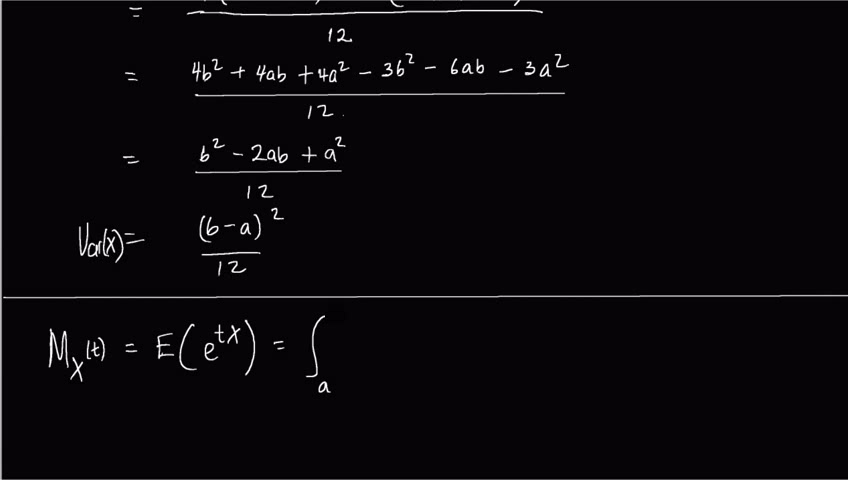 =
12
= 4b² + 4ab + 4a² - 3b² - 6ab - 3a²
12
= b² - 2ab + a²
12
Var(x) = (b-a)²
12
M_X(t) = E(e^{tX}) = ∫_a